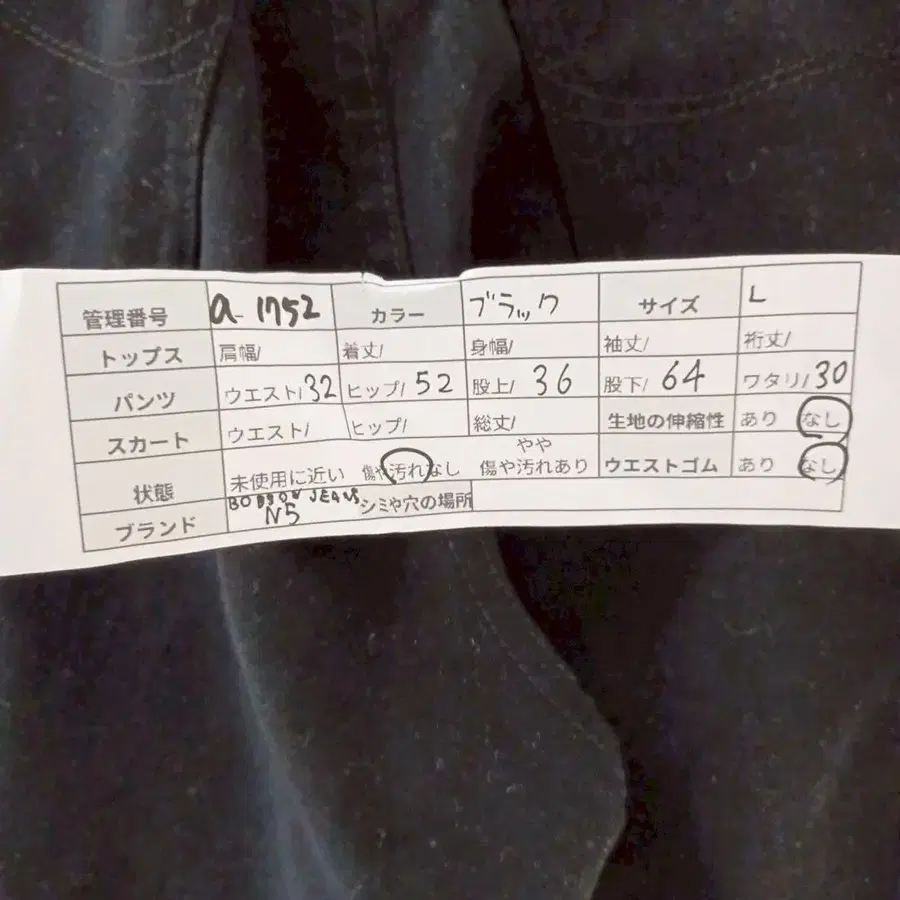 管理番号 a-1752 カラー ブラック サイズ L
トップス 肩幅/ 着丈/ 身幅/ 袖丈/ 裄丈/
パンツ ウエスト/32 ヒップ/52 股上/36 股下/64 ワタリ/30
スカート ウエスト/ ヒップ/ 総丈/ 生地の伸縮性 あり なし
状態 未使用に近い 傷や汚れなし やや傷や汚れあり ウエストゴム あり なし
ブランド BOBSON JEANS N5 シミや穴の場所